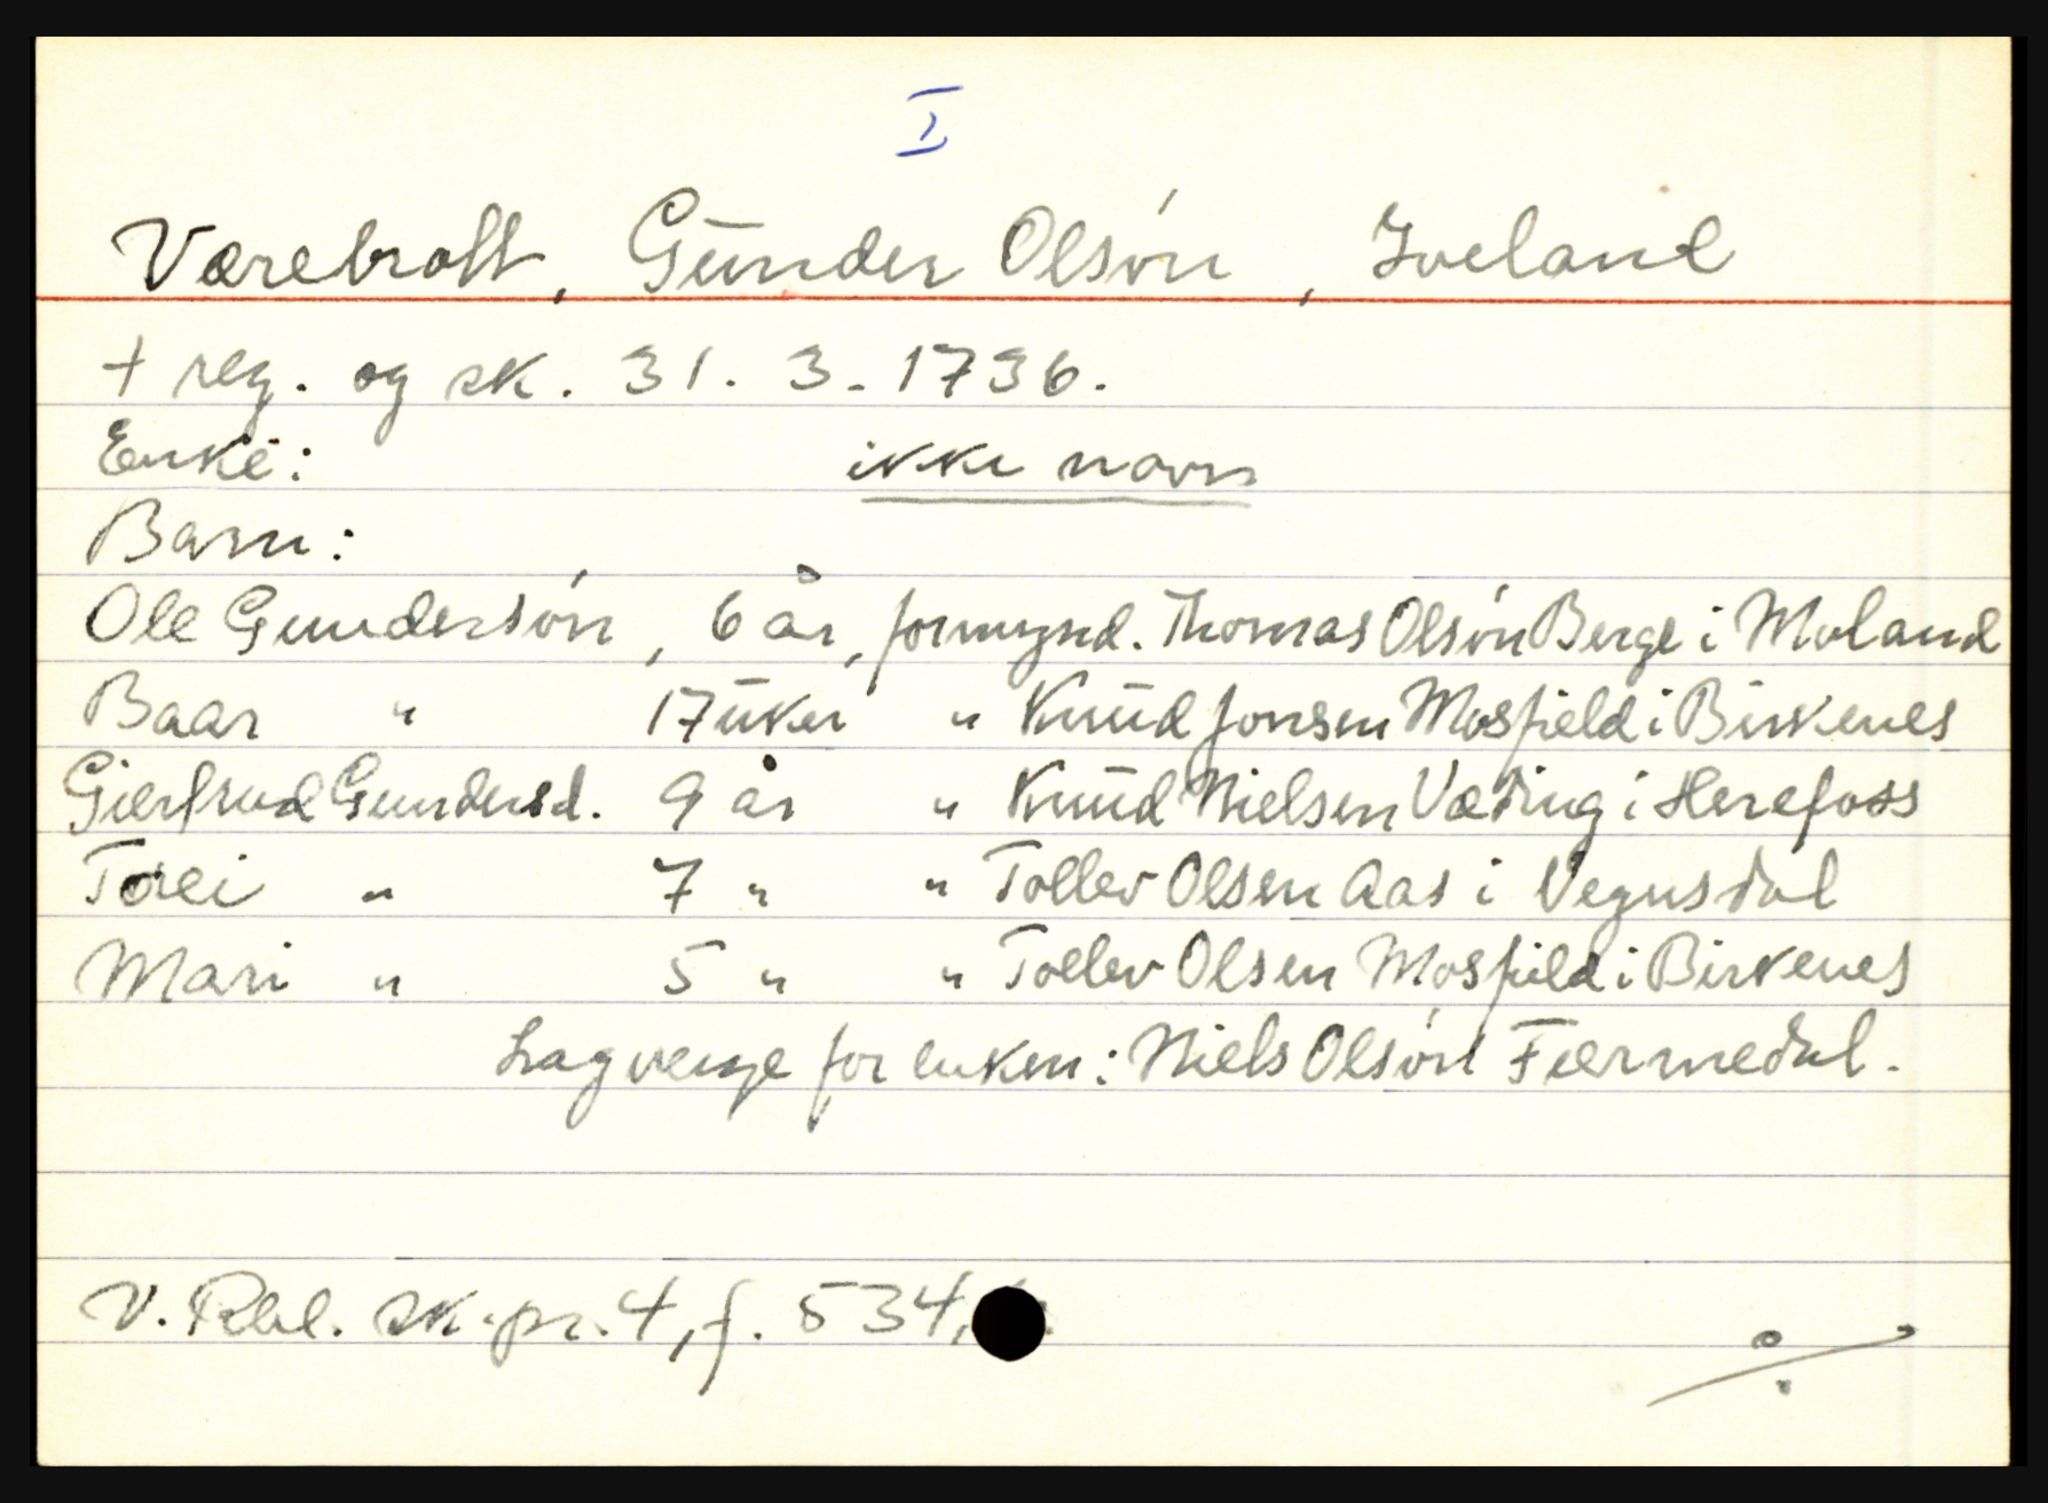 I
Værebrott, Gunder Olsøn, Iveland
+ reg. og sk. 31. 3. 1736.
Enke: ikke navn
Barn:
Ole Gundersøn, 6 år, formynd. Thomas Olsøn Berge i Moland
Baar " 17 uker " Knud Jonsen Mosfield i Birkenes
Giertrud Gundersd. 9 år " Knud Nielsen Væting i Herefoss
Torei " 7 " " Tollev Olsen Aas i Vegusdal
Mari " 5 " " Tollev Olsen Mosfield i Birkenes
Lagverge for enken: Niels Olsøn Fiermedal.
V. Rbl. sk.pr. 4, f. 534,